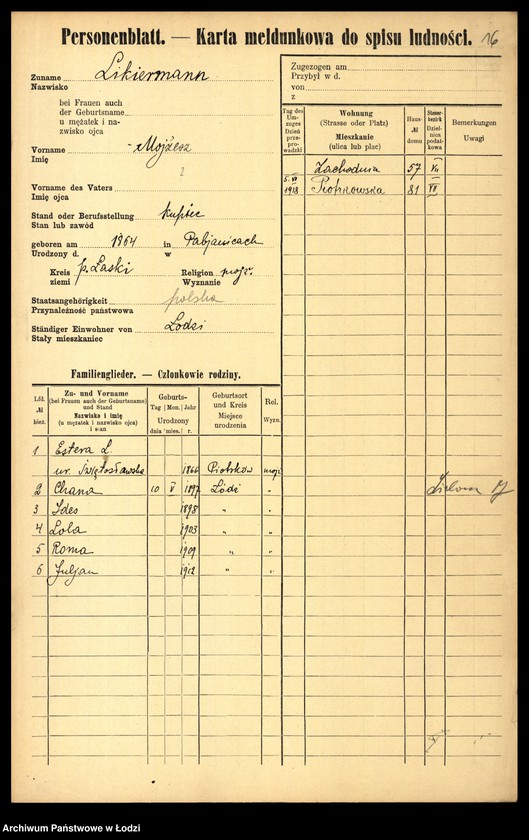 Personenblatt. — Karta meldunkowa do spisu ludności. 16
Zuname Likiermann
Nazwisko
bei Frauen auch
der Geburtsname
u mężatek i na-
zwisko ojca
Vorname Mojżesz
Imię
2
Vorname des Vaters
Imię ojca
Stand oder Berufsstellung kupiec
Stan lub zawód
geboren am 1864 in Pabjanicach
Urodzony d. w
Kreis p. Łaski Religion mojż.
ziemi Wyznanie
Staatsangehörigkeit polska
Przynależność państwowa
Ständiger Einwohner von Łodzi
Stały mieszkaniec
Familienglieder. — Członkowie rodziny.
Lfd. № bież.
Zu- und Vorname
(bei Frauen auch der Geburtsname)
und Stand
Nazwisko i imię
(u mężatek i nazwisko ojca)
i stan
Geburts-
Tag Mon. Jahr
Urodzony
dnia mies. r.
Geburtsort
und Kreis
Miejsce
urodzenia
Rel.
Wyzn.
1 Estera L.
ur. Świętosławska 1866 Piotrków mojż
2 Chana 10 V 1897 Łódź "
3 Ides 1898 " "
4 Lola 1903 " "
5 Roma 1909 " "
6 Juljan 1912 " "
Zugezogen am
Przybył w d.
von
z
Tag des
Um-
zuges
Dzień
prze-
prowadzki
Wohnung
(Strasse oder Platz)
Mieszkanie
(ulica lub plac)
Haus-
№
domu
Steuer-
bezirk
Dziel-
nica
podat-
kowa
Bemerkungen
Uwagi
Zachodnia 57 VII
5. VI
1918 Piotrkowska 81 VII
Archiwum Państwowe w Łodzi